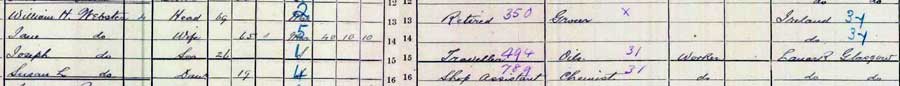 12 12
William H. Webster Head 69 2 13 13 Retired 350 Grocer X Ireland 34
Jane do Wife 65 5 40 10 10 14 14 do 34
Joseph do Son 26 4 15 15 Traveller 494 Oils 31 Worker Lanark Glasgow
Susan L. do Daur 19 4 16 16 Shop Assistant 789 Chemist 31 do do do